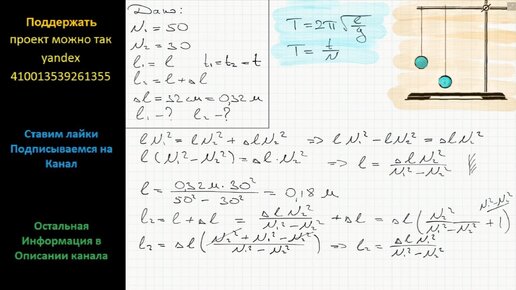 Поддержать
проект можно так
yandex
410013539261355
Ставим лайки
Подписываемся на
Канал
Остальная
Информация в
Описании канала
Дано:
N₁ = 50
N₂ = 30
l₁ = l t₁ = t₂ = t
l₂ = l + Δl
Δl = 32 см = 0,32 м
l₁ - ? l₂ - ?
T = 2π√(l/g)
T = t/N
lN₁² = lN₂² + ΔlN₂² ⇒ lN₁² - lN₂² = ΔlN₂²
l(N₁² - N₂²) = Δl·N₂² ⇒ l = ΔlN₂²/(N₁² - N₂²)
l = 0,32 м · 30²/(50² - 30²) = 0,18 м
l₂ = l + Δl = ΔlN₂²/(N₁² - N₂²) + Δl = Δl(N₂²/(N₁² - N₂²) + 1) N₁² - N₂²
l₂ = Δl((N₂² + N₁² - N₂²)/(N₁² - N₂²)) ⇒ l₂ = ΔlN₁²/(N₁² - N₂²)